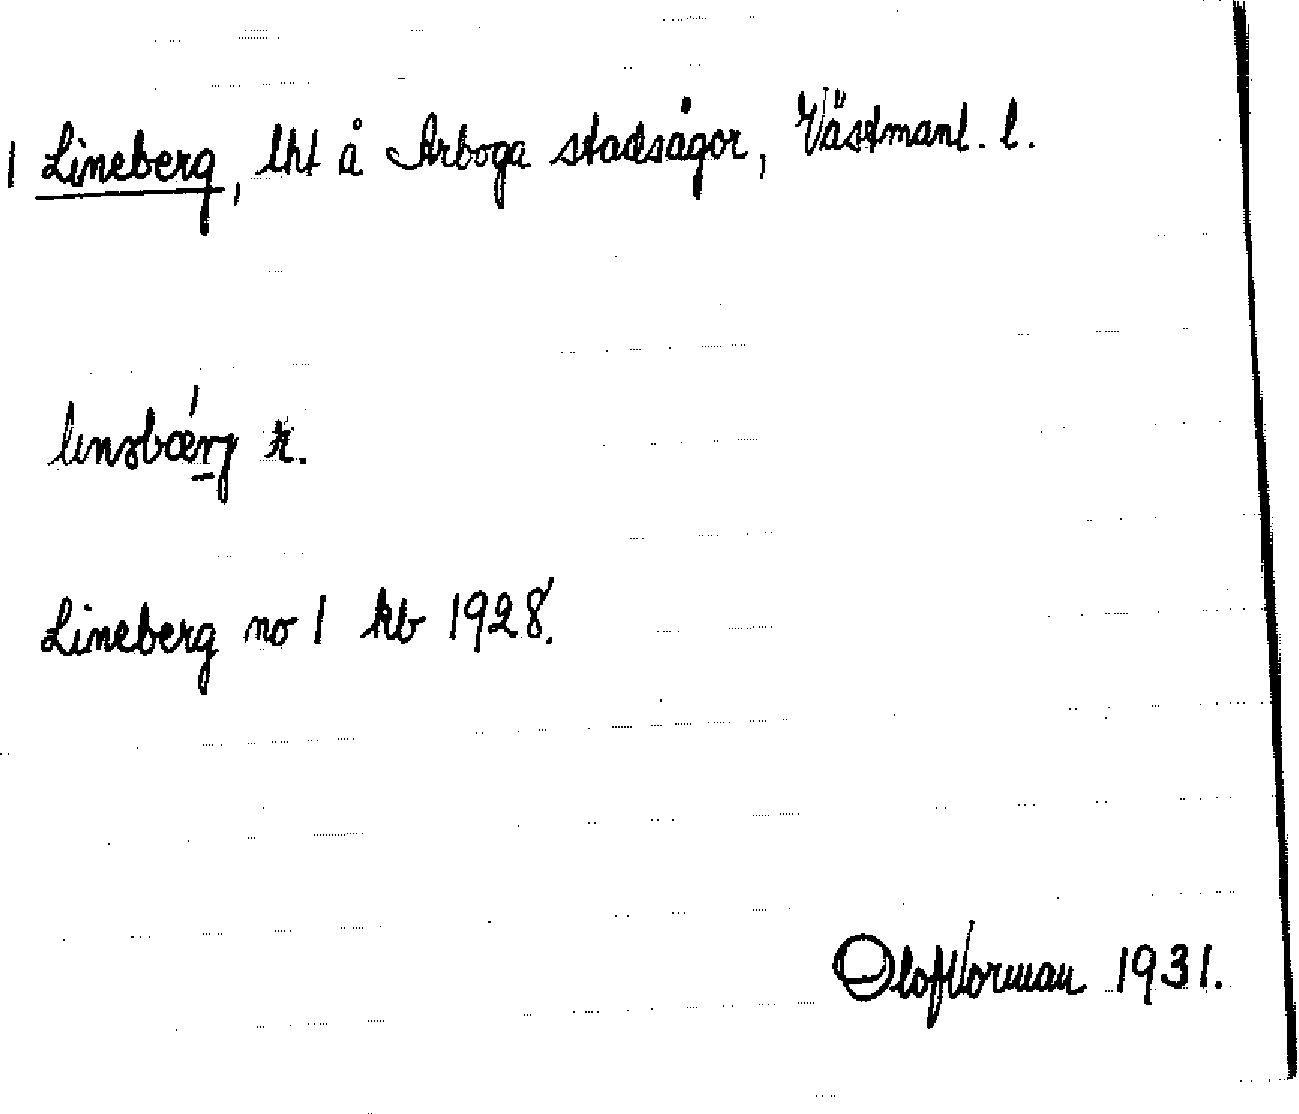 1 Lineberg, lht å Arboga stadsägor, Västmanl. l.
k.
Lineberg no 1 kb 1928.
Olof Norman 1931.